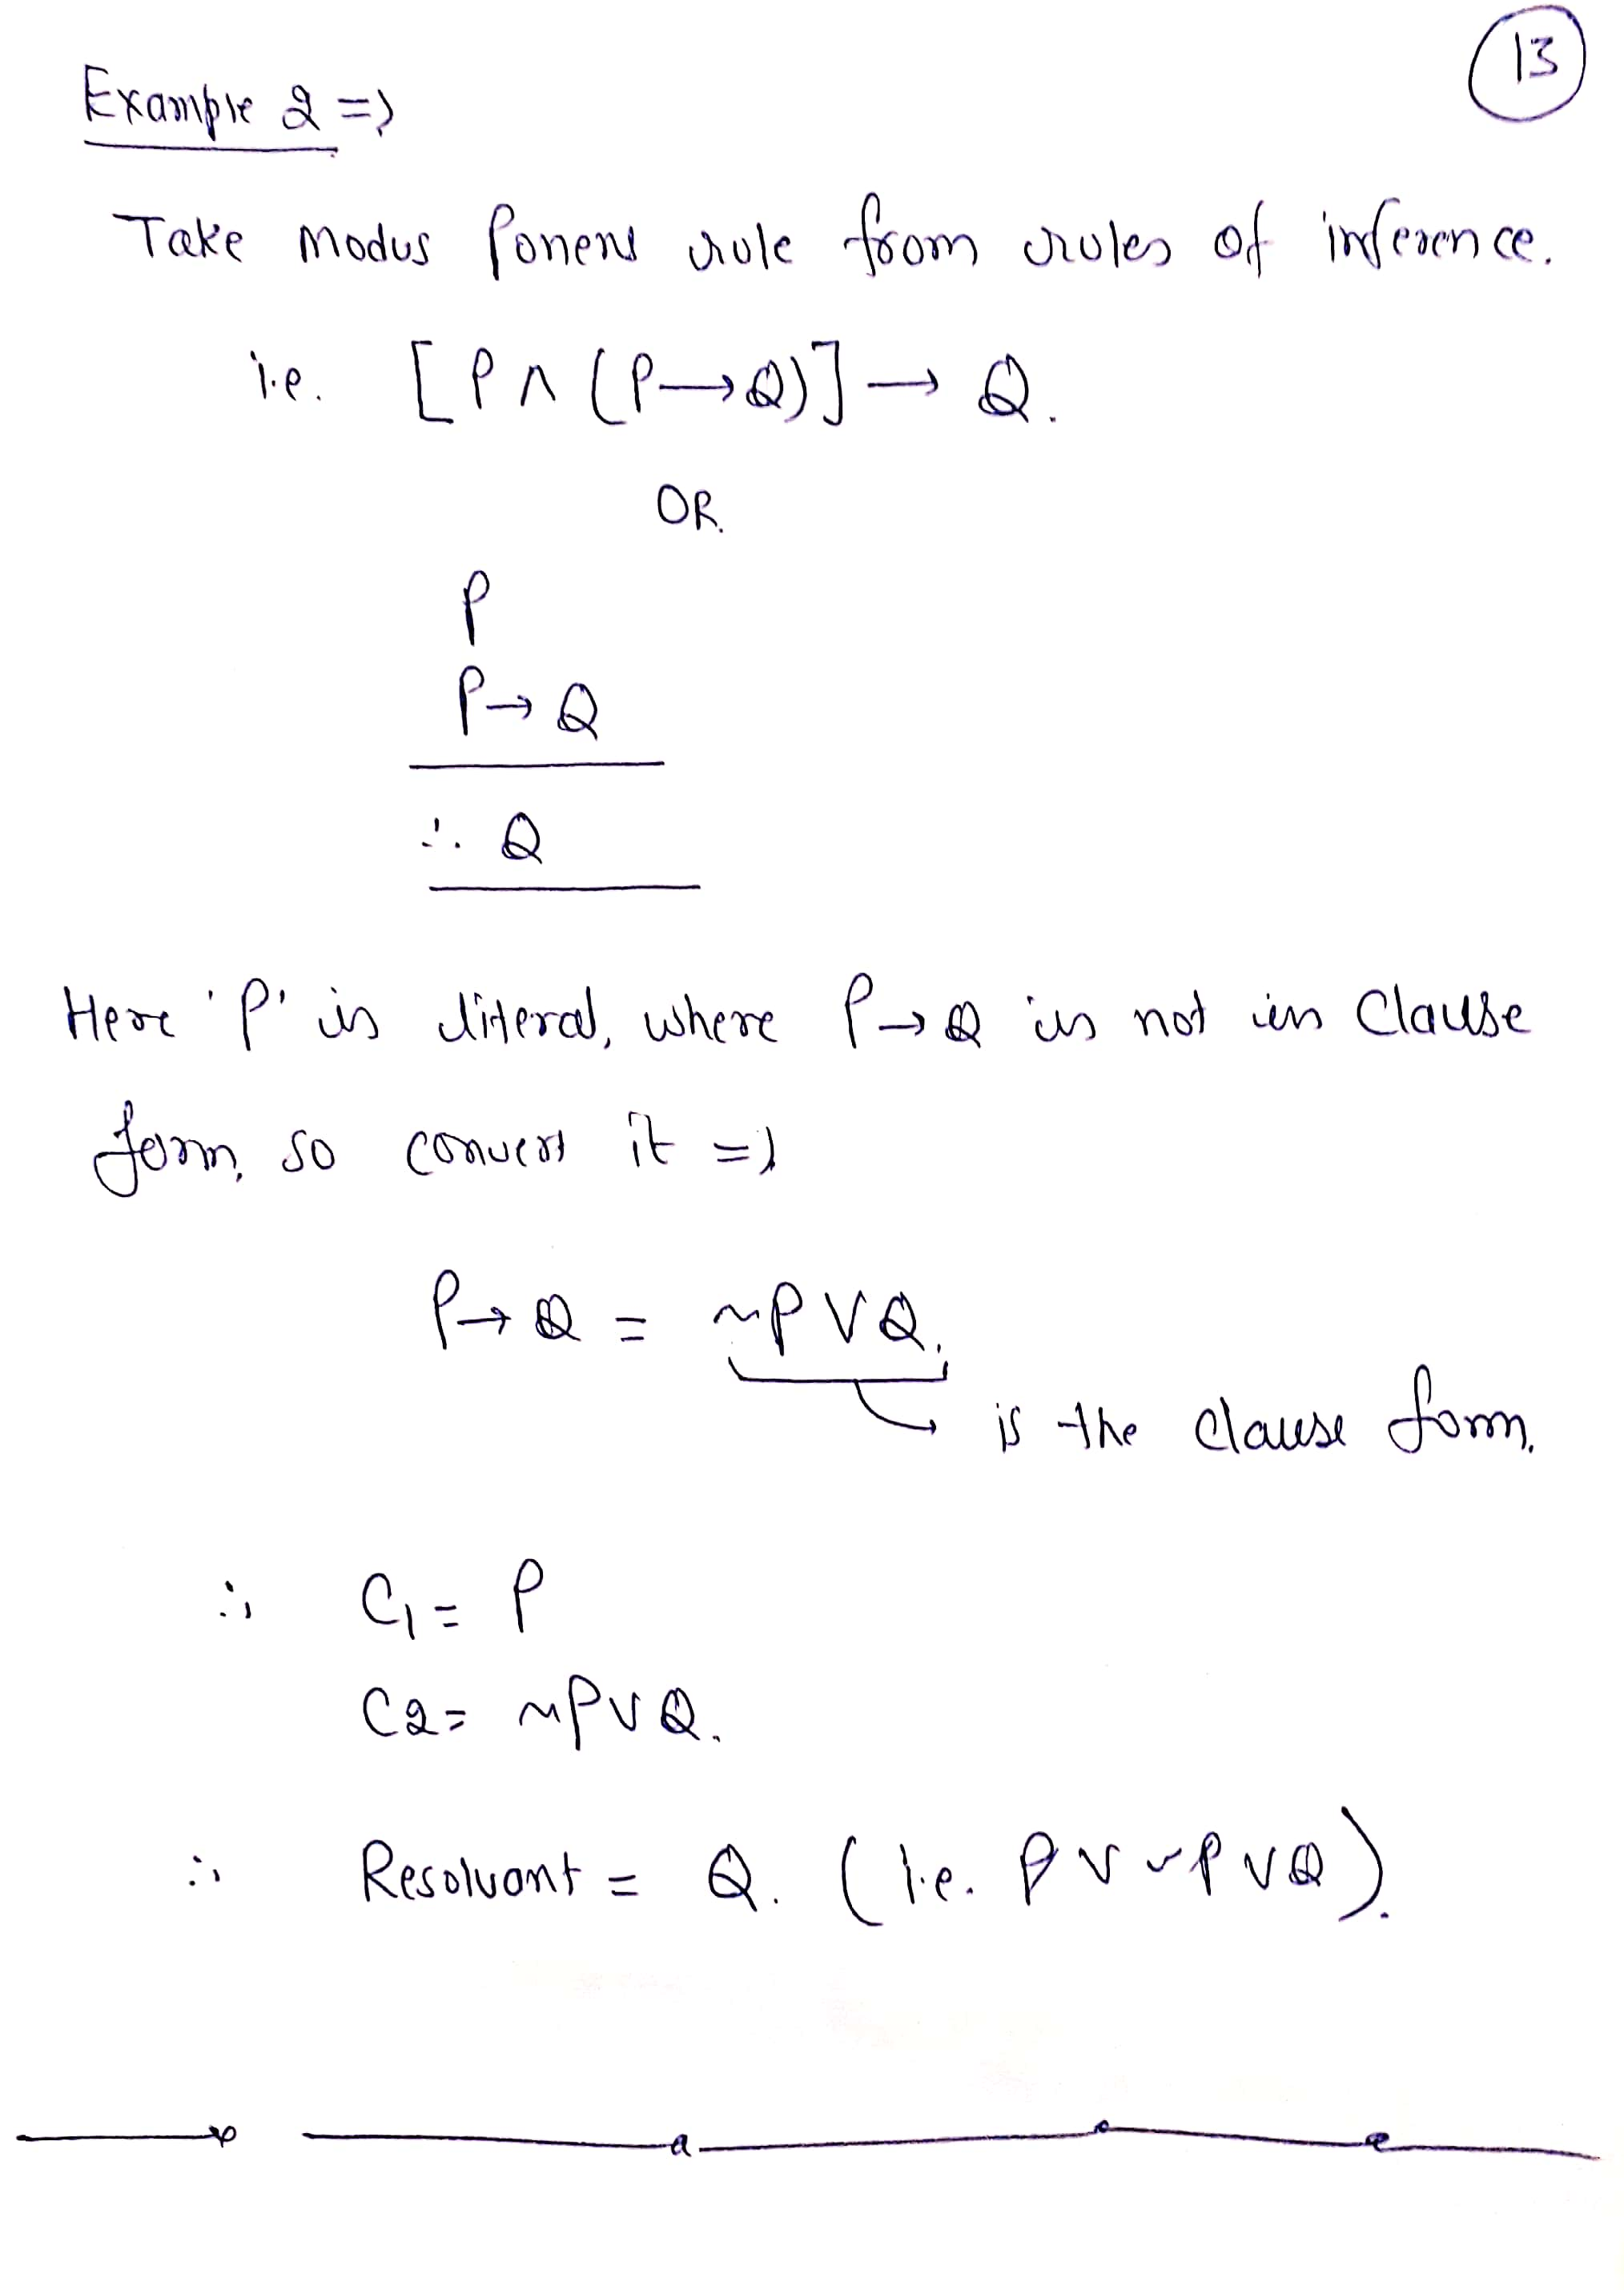 13
Example 2 =>
Take Modus Ponens rule from rules of inference.
i.e. [P ∧ (P→Q)] → Q.
OR.
P
P→Q
∴ Q
Here 'P' is literal, where P→Q is not in Clause
form, so convert it =>
P→Q = ~P ∨ Q.
is the Clause form.
∴ C1 = P
C2 = ~P∨Q.
∴ Resolvant = Q. (i.e. P ∨ ~P ∨Q).